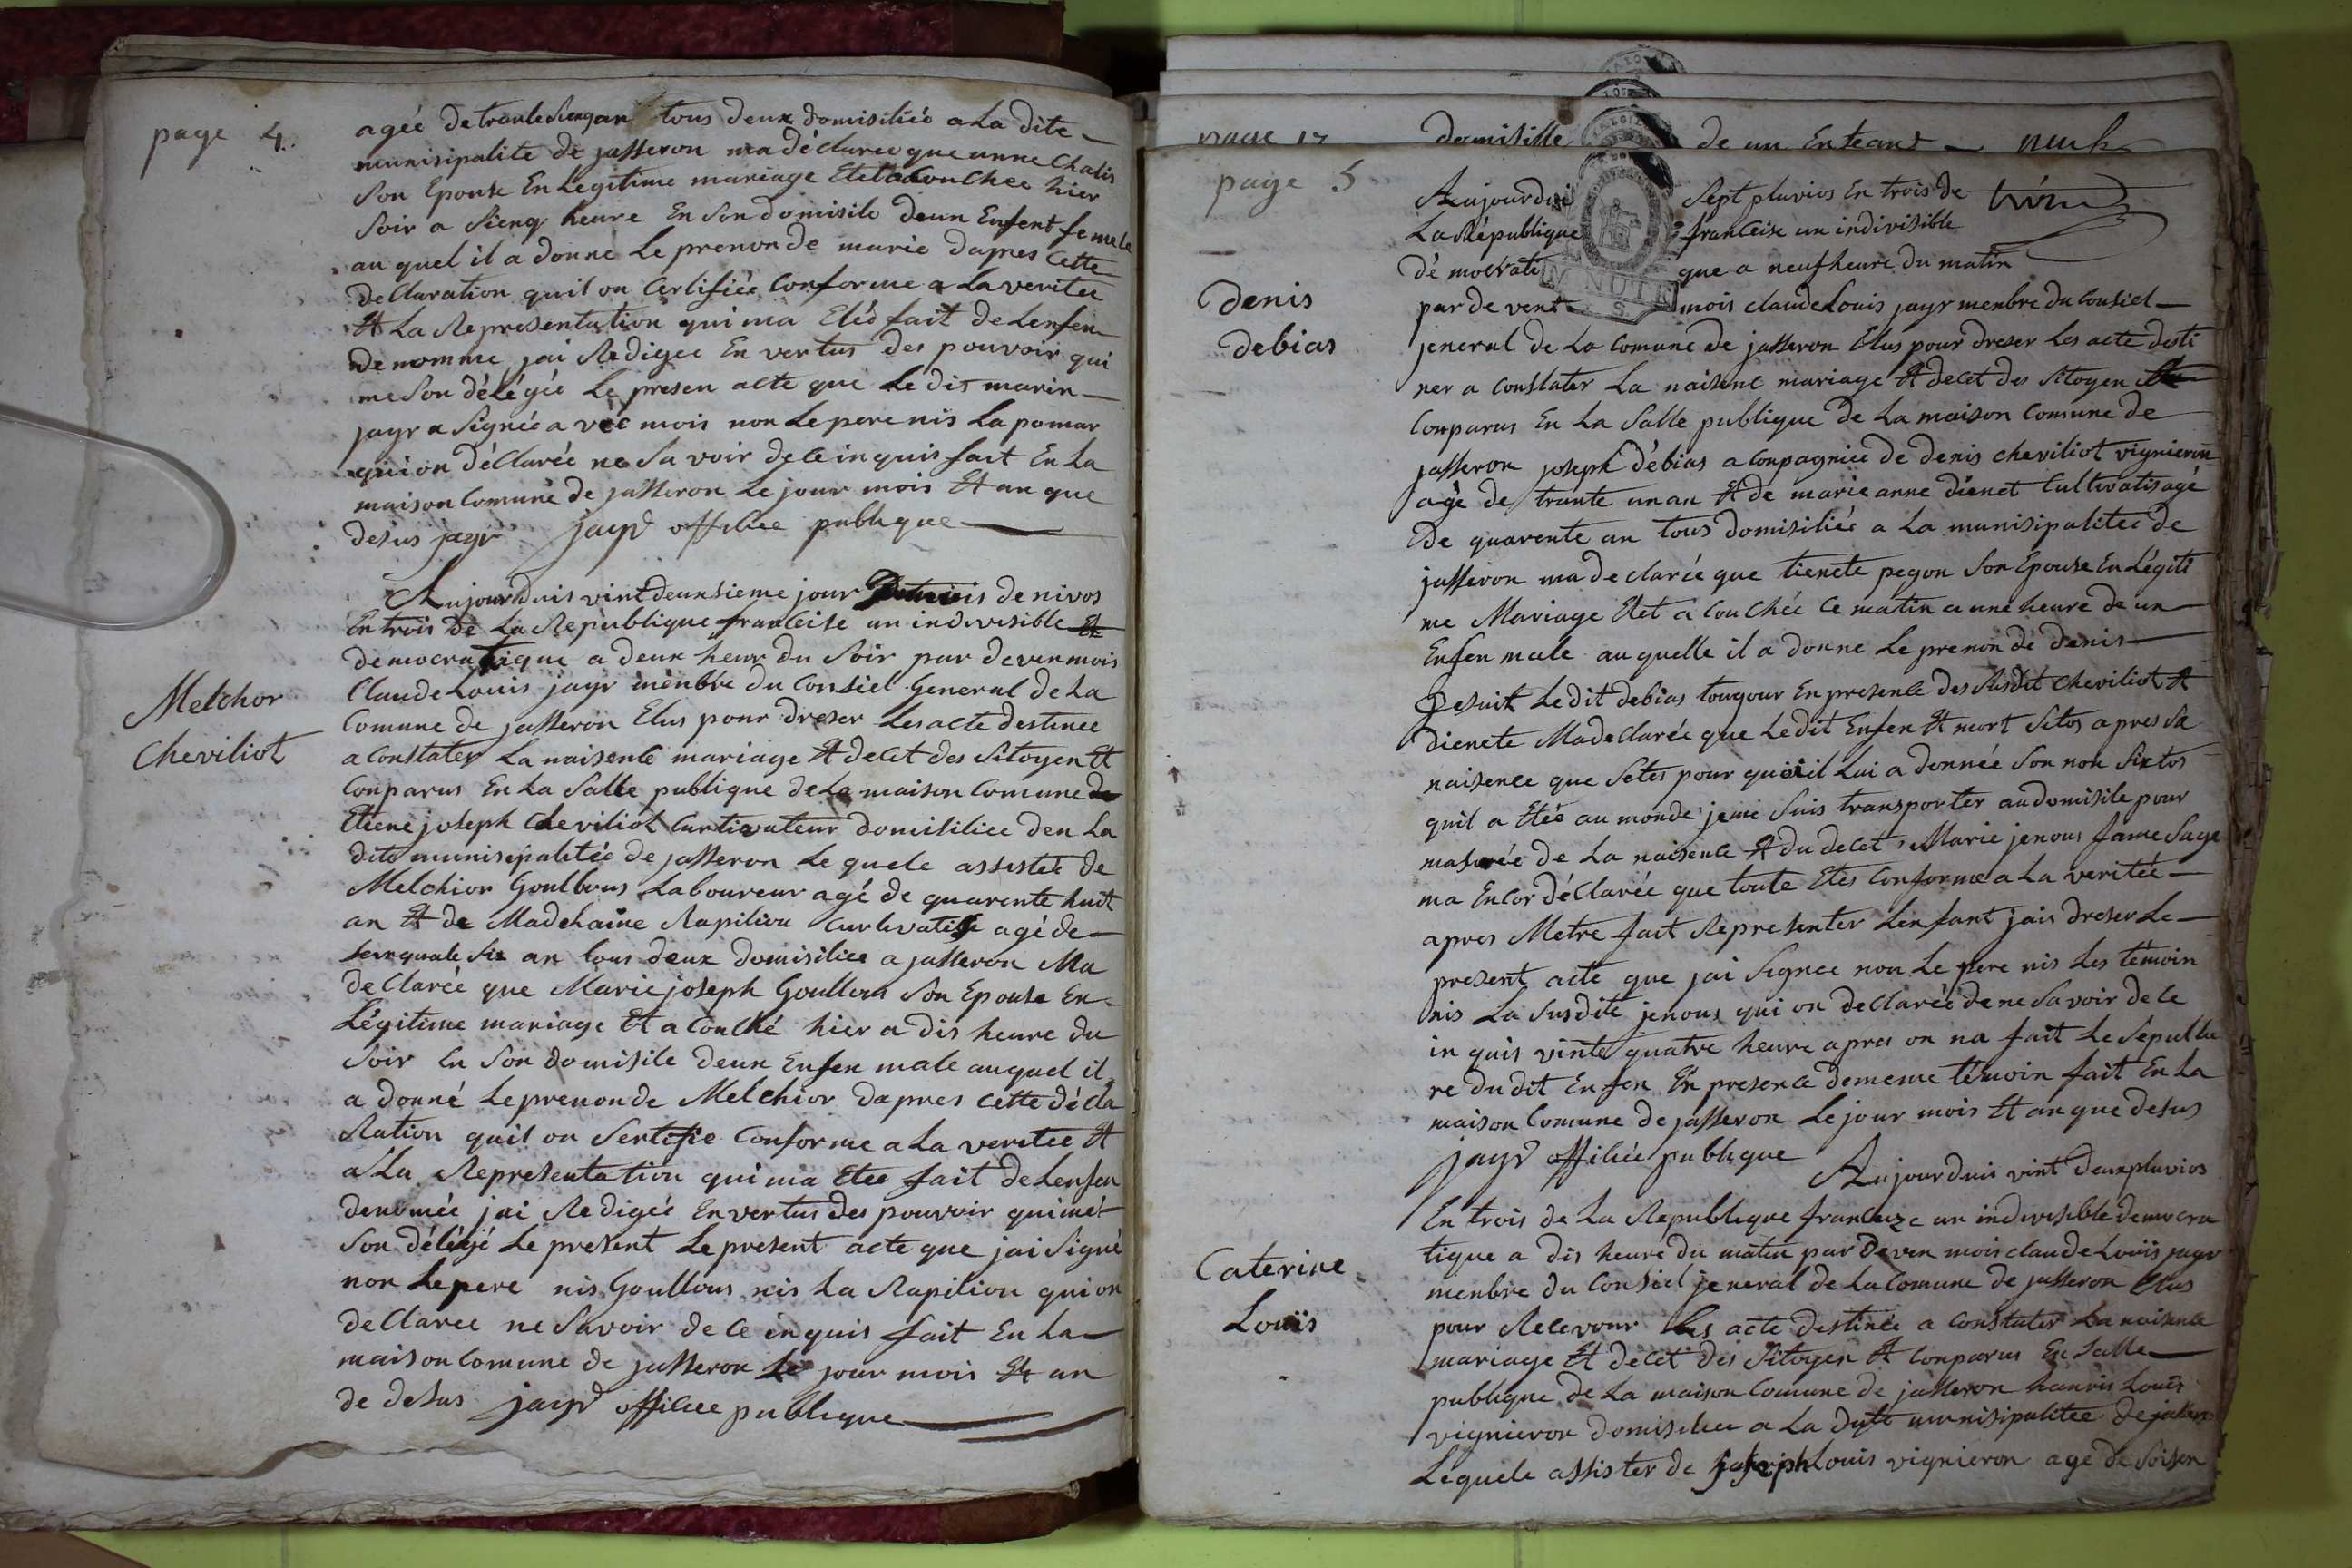 page 4.
agée de trante sienq an tous deux domisiliée a La dite
munisipalite de jasseron ma déClaree que anne Chatis
Son Epouse En Legitime mariage Etet acouchee hier
Soir a Sienq heure En Son domisile deun Enfent femele
au quel il a donne Le prenon de marie dapres Cette
deClaration quil on Certifiée Conforme a La veritee
Et La Representation qui ma Etéé fait de Lenfen
denomme jai Redigee En vertus des pouvoir qui
me Son délégée Le presen acte que Le dit marin
jayr a Signée a vec mois non Le pere nis La pomar
qui on déClarée ne Savoir de ce inquis fait En La
maison Comune de jasseron Le jour mois Et an que
desus jayr jayr offiliee publique
Melchor
Cheviliot
Aujourduis vint deuxsieme jour de nivos
En trois de La Republique franceise un indivisible Et
democratique a deux heur du Soir par deven mois
Claude Louis jayr menbre du Consiel General de La
Comune de jasseron Elus pour dreser Les acte destinee
a Constater La naisence mariage Et decet des Sitoyen Et
Conparus En La Salle publique de La maison Comune de
Etiene joseph Cheviliot Curtivateur domisiliee den La
dite munisipalitée de jasseron Le quele assistée de
Melchior Goulbous Laboureur agé de quarente huit
an Et de Madelaine Rapiliou Curtivatise agé de
senquate Sis an tous deux domisiliee a jasseron Ma
deClarée que Marie joseph Goullous Son Epouse En
Légitime mariage Et a Couché hier a dis heure du
Soir En Son domisile deun Enfen male auquel il
a donné Le prenon de Melchior dapres Cette décla
Ration quil on Sertifie Conforme a La veritee Et
a La Representation qui ma Etee fait de Lenfen
denomée jai Redigée En vertus des pouvoir qui mé
Son délégé Le present Le present acte que jai Signé
non Le pere nis Goullous nis La Rapiliou qui on
deClaree ne Savoir de Ce inquis fait En La
maison Comune de jasseron Le jour mois Et an
de desus jayr offiliee publique
page 17 domisille de un Enteant
page 5
Denis
debias
Aujourdui Sept pluvios En trois de
La République franceise un indivisible
dé mocrati que a neuf heure du matin
MINUTE
par de vent mois claude Louis jayr menbre du Consiel
jeneral de La Comune de jasseron Elus pour dreser Les acte desti
ner a Constater La naisenc mariage Et decet des Sitoyen Et
Conparus En La Salle publique de La maison Comune de
jasseron joseph débias a Conpagniée de denis cheviliot vignieron
agé de trante un an Et de marie anne dienet Cultivatis agé
de quarente an tous domisiliée a La munisipalitée de
jasseron ma de clarée que tienete pegon Son Epouse En Légiti
me Mariage Etet a Couchée Ce matin a une heure de un
Enfen male au quelle il a donne Le prenon de denis
desuit Le dit debias tougour En presence des Susdit cheviliot Et
dienete Ma declarée que Le dit Enfen Et mort Sitos apres Sa
naisence que Setes pour quoi il Lui a donnée Son non Sixtos
quil a Etée au monde jeme Suis transporter au domisile pour
masurée de La naisence Et du decet Marie jenous fame Sage
ma Encor déclarée que toute Etes Conforme a La veritée
apres Metre fait Representer Lenfant jais dreser Le
present acte que jai Signee non Le pere nis Les témoin
nis La Susdite jenous qui on declarée de ne Savoir de Ce
in quis vinte quatre heure apres on na fait Le Sepultu
re du dit Enfen En presence de meme témoin fait En La
maison Comune de jasseron Le jour mois Et an que desus
jayr offiliée publique
Caterine
Louis
Aujourduis vint deux pluvios
En trois de La Republique franceize un indivisible democra
tique a dis heure du matin par deven mois claude Louis jayr
menbre du Consiel jeneral de La Comune de jasseron Elus
pour Recevoir Les acte destinée a Constater La naisence
mariage Et decet des Sitoyen Et Conparus En Salle
publique de La maison Comune de jasseron hanris Louis
vignieron domisiliee a La dite munisipalitee de jasseron
Lequele assister de joseph Louis vignieron agé de Soisen